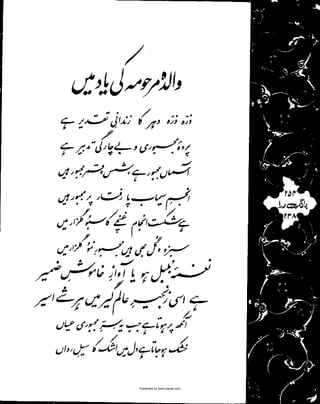 والدہ مرحومہ کی یاد میں
ذرّہ ذرّہ دہر کا زندانیِ تقدیر ہے
پردۂ مجبوری و بےچارگی تدبیر ہے
آسماں مجبور ہے، شمس و قمر مجبور ہیں
انجمِ سیماب پا رفتار پر مجبور ہیں
ہے شکست انجام غنچے کا سبو گلزار میں
سبزہ و گل بھی ہیں مجبورِ نمو گلزار میں
نغمۂ بلبل ہو یا آوازِ خاموشِ ضمیر
ہے اسی زنجیرِ عالم گیر میں ہر شے اسیر
آنکھ پر ہوتا ہے جب یہ سرِّ مجبوری عیاں
خشک ہو جاتا ہے دل میں اشک کا سیلِ رواں
۲۵۴
بانگِ درا
۲۳۸
Presented by www.ziaraat.com